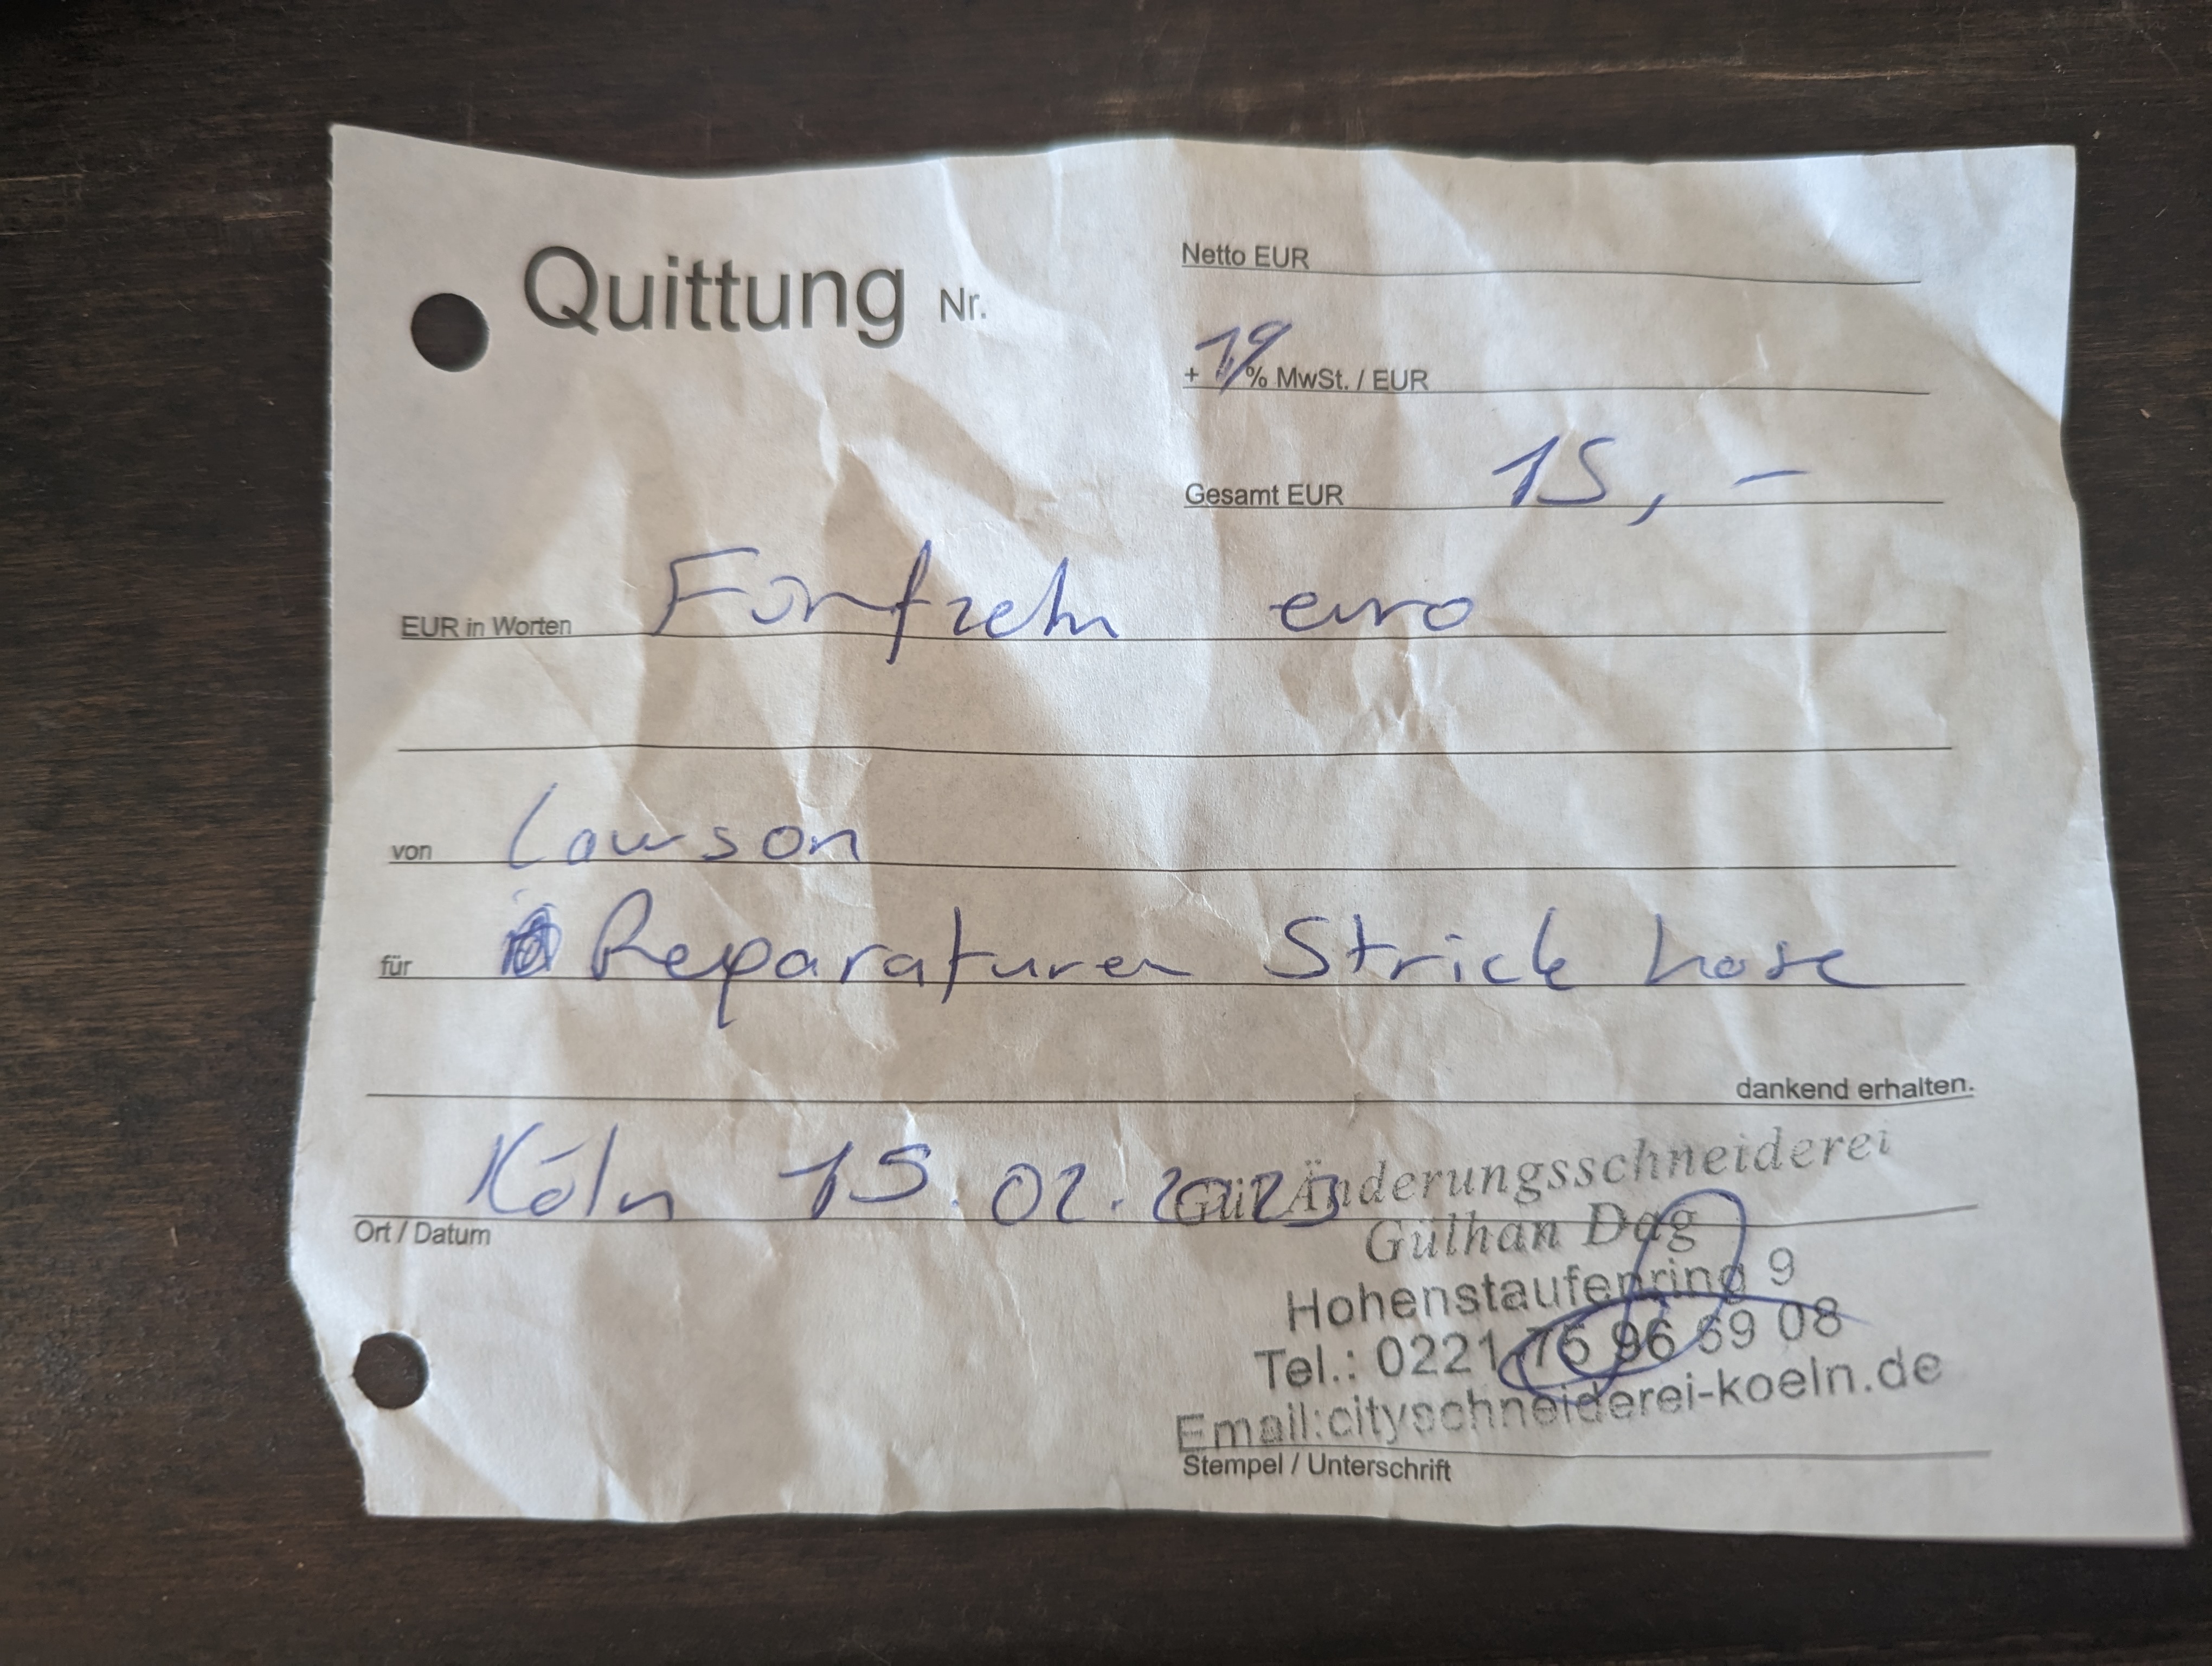 Quittung Nr.
Netto EUR
+ 19 % MwSt. / EUR
Gesamt EUR 15,-
EUR in Worten Fünfzehn euro
von Lawson
für Reparaturen Strick hose
dankend erhalten.
Köln 15.02.2023
Ort / Datum
Gül Änderungsschneiderei
Gülhan Dag
Hohenstaufenring 9
Tel.: 0221 75 96 69 08
Email:cityschneiderei-koeln.de
Stempel / Unterschrift